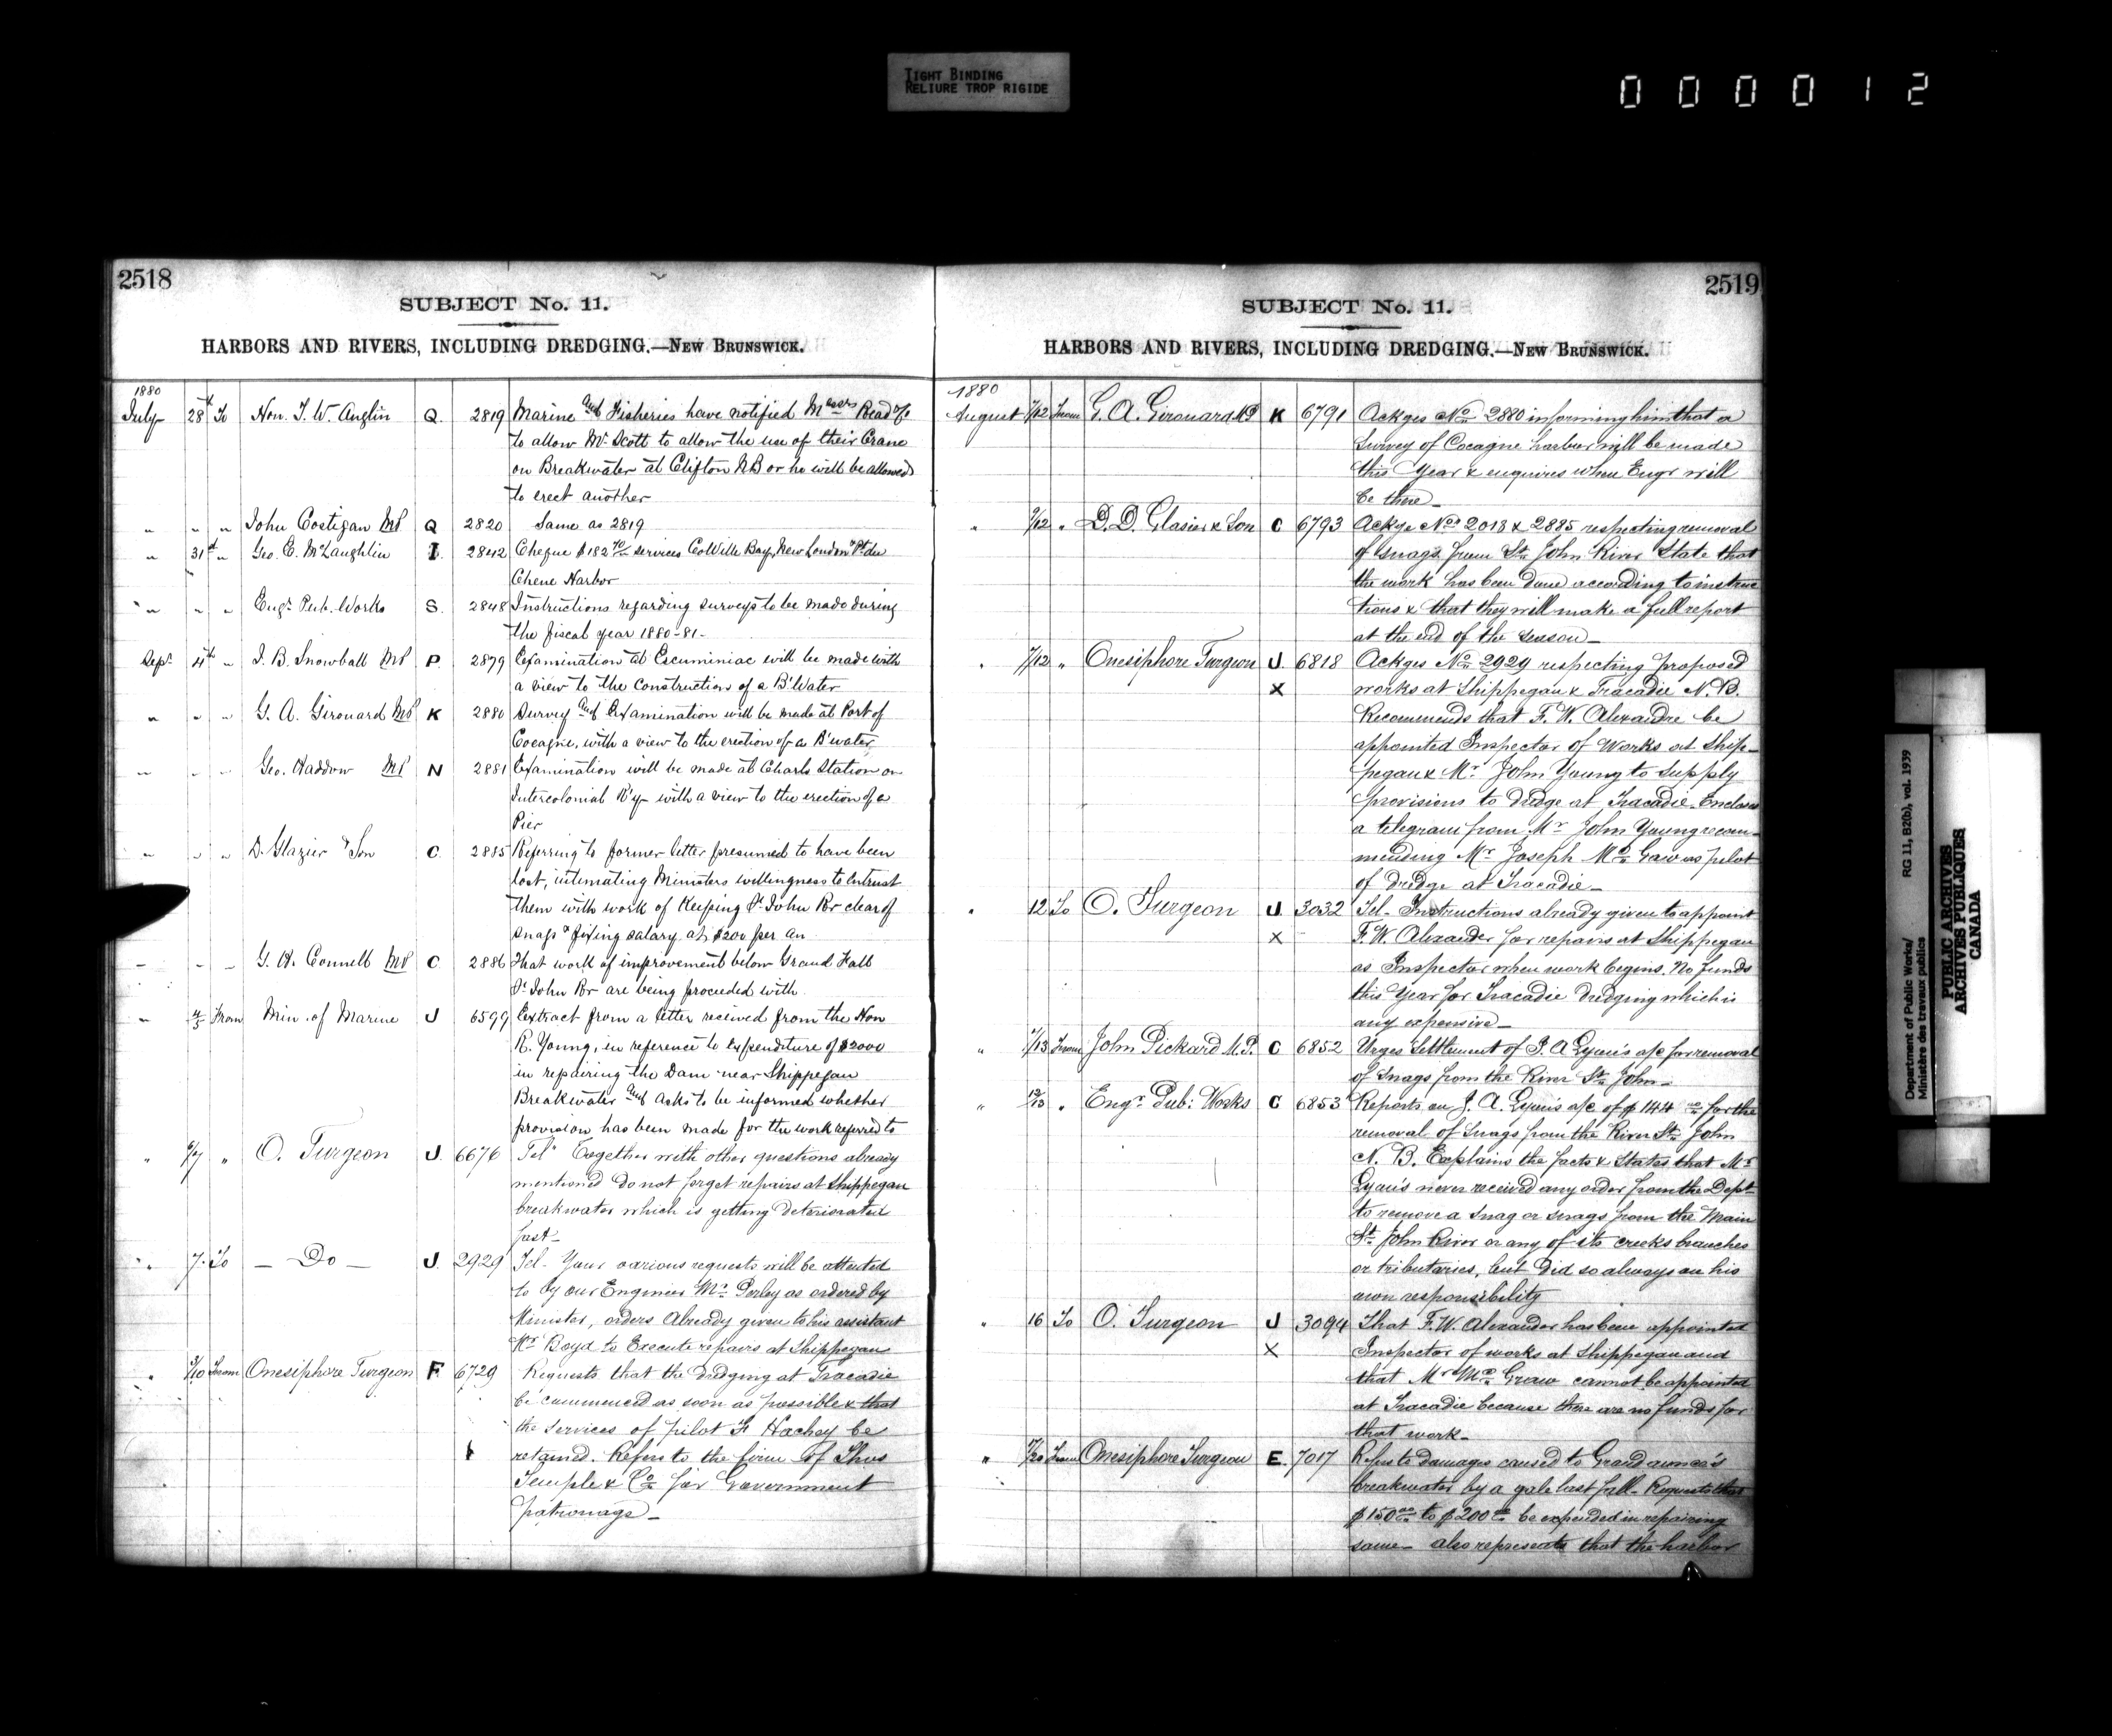 TIGHT BINDING
RELIURE TROP RIGIDE
000012
2518
SUBJECT No. 11.
HARBORS AND RIVERS, INCLUDING DREDGING.—NEW BRUNSWICK.
1880
July 28th To Hon. T. W. Anglin Q. 2819 Marine and Fisheries have notified Messrs Read &c
to allow Mr Scott to allow the use of their Crane
on Breakwater at Clifton NB or he will be allowed
to erect another
" " " John Costigan MP Q 2820 Same as 2819
" 31st " Geo. E. McLaughlin I. 2842 Cheque $182 70/100 services Colville Bay, New London & Pt du
Chene Harbor
" " " Engr Pub. Works S. 2848 Instructions regarding surveys to be made during
the fiscal year 1880-81-
Sepr 4th " J. B. Snowball MP P. 2879 Examination at Escuminiac will be made with
a view to the construction of a B'Water
" " " G. A. Girouard MP K 2880 Survey and Examination will be made at Port of
Cocagne, with a view to the erection of a B'water
" " " Geo. Haddow MP N 2881 Examination will be made at Charlo Station on
Intercolonial R'y with a view to the erection of a
Pier
" " " D. Glazier & Son C. 2885 Referring to former letter presumed to have been
lost, intimating Ministers willingness to entrust
them with work of keeping St John Rr clear of
snags & fixing salary at $200 per an
" " " G. H. Connell MP C 2886 That work of improvement below Grand Falls
St John Rr are being proceeded with
" 4/5 From Min. of Marine J 6599 Extract from a letter received from the Hon
R. Young, in reference to expenditure of $2000
in repairing the Dam near Shippegan
Breakwater and asks to be informed whether
provision has been made for the work referred to
" 6/7 " O. Turgeon J. 6676 Tel" Together with other questions already
mentioned do not forget repairs at Shippegan
breakwater which is getting deteriorated
fast—
" 7. To — Do — J. 2929 Tel- Your various requests will be attended
to by our Engineer Mr Perley as ordered by
Minister, orders already given to his assistant
Mr Boyd to Execute repairs at Shippegan
" /10 From Onesiphore Turgeon F. 6729 Requests that the dredging at Tracadie
be commenced as soon as possible & that
the services of pilot F. Hachey be
retained. Refers to the firm of Thos
Temple & Co for Government
patronage—
2519
SUBJECT No. 11.
HARBORS AND RIVERS, INCLUDING DREDGING.—NEW BRUNSWICK.
1880
August /12 From G. A. Girouard MP K 6791 Ackges No 2880 informing him that a
survey of Cocagne harbor will be made
this Year & enquires when Engr will
be there—
" /12 " D. D. Glasier & Son C 6793 Ackge Nos 2013 & 2885 respecting removal
of snags from St John River State that
the work has been done according to instruc
tions & that they will make a full report
at the end of the season—
" 7/12 " Onesiphore Turgeon J. 6818 Ackges No 2929 respecting proposed
X works at Shippegan & Tracadie N.B.
Recommends that F. W. Alexandre be
appointed Inspector of Works at Ship-
pegan & Mr John Young to supply
provisions to dredge at Tracadie. Encloses
a telegram from Mr John Young recom-
mending Mr Joseph McGraw as pilot
of dredge at Tracadie—
" 12 To O. Turgeon J. 3032 Tel- Instructions already given to appoint
X F. W. Alexander for repairs at Shippegan
as Inspector when work begins. No funds
this Year for Tracadie dredging which is
any expensive—
" /13 From John Pickard M.P. C 6852 Urges Settlement of J. A Lyon's a/c for removal
of snags from the River St John—
" 12/13 " Engr Pub: Works C 6853 Reports on J. A. Lyon's a/c of $144 00/100 for the
removal of snags from the River St John
N. B. Explains the facts & States that Mr
Lyon's never received any order from the Dept
to remove a snag or snags from the Main
St John River or any of its creeks branches
or tributaries, but did so always on his
own responsibility
" 16 To O. Turgeon J 3094 That F. W. Alexander has been appointed
X Inspector of works at Shippegan and
that Mr McGraw cannot be appointed
at Tracadie because there are no funds for
that work—
" /20 From Onesiphore Turgeon E. 7017 Refers to damages caused to Grand aunce's
breakwater by a gale last fall. Requests that
$150 00 to $200 00 be expended in repairing
same— also represents that the harbor
Department of Public Works/ RG 11, B2(b), vol. 1939
Ministère des travaux publics
PUBLIC ARCHIVES
ARCHIVES PUBLIQUES
CANADA